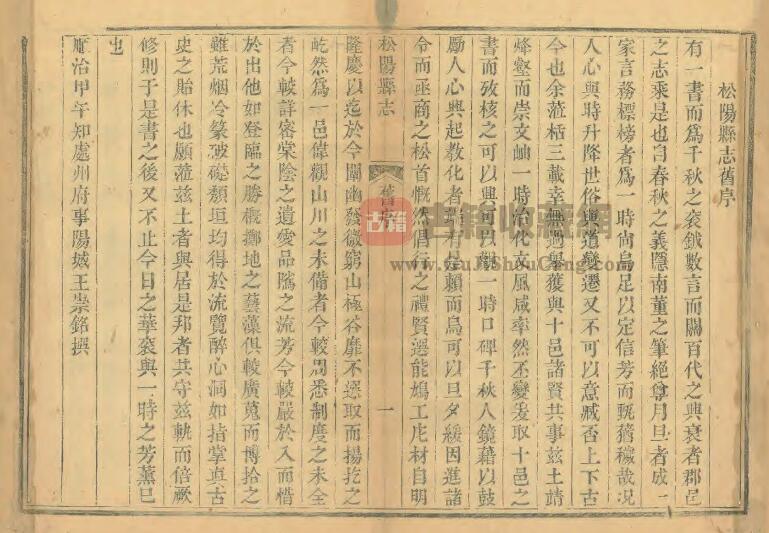 松陽縣志舊序
有一書而爲千秋之袞鉞數言而關百代之興衰者郡邑
之志乘是也自春秋之義隱南董之筆絶尊月旦者成一
家言務標榜者爲一時尚烏足以定信芳而覈猶穢哉况
人心與時升降世俗與道變遷又不可以意臧否上下古
今也余蒞栝三載幸無過舉獲與十邑諸賢共事兹土靖
烽壑而崇文岫一時治化文風咸率然丕變爰取十邑之
書而攷核之可以興可以觀一時口碑千秋人鏡藉以鼓
勵人心興起教化者諝有是賴而烏可以旦夕緩因進諸
令而亟商之松首慨然倡行之禮賢選能鳩工庀材自明
松陽縣志 舊序 一
隆慶以迄於今闡幽發微窮山極谷靡不選取而揚扢之
屹然爲一邑偉觀山川之未備者今較周悉制度之未全
者今較詳密棠陰之遺愛品隲之流芳今較嚴於入而惜
於出他如登臨之勝概擲地之藝藻俱較廣蒐而博拾之
雖荒烟冷篆破磴頽垣均得於流覽醉心洞如指掌真古
史之貽休也願蒞兹土者與居是邦者共守兹軌而倍厥
修則于是書之後又不止今日之華袞與一時之芳薰已
也
順治甲午知處州府事陽城王崇銘撰
古籍
書籍收藏網
www.ShuJiShouCang.com